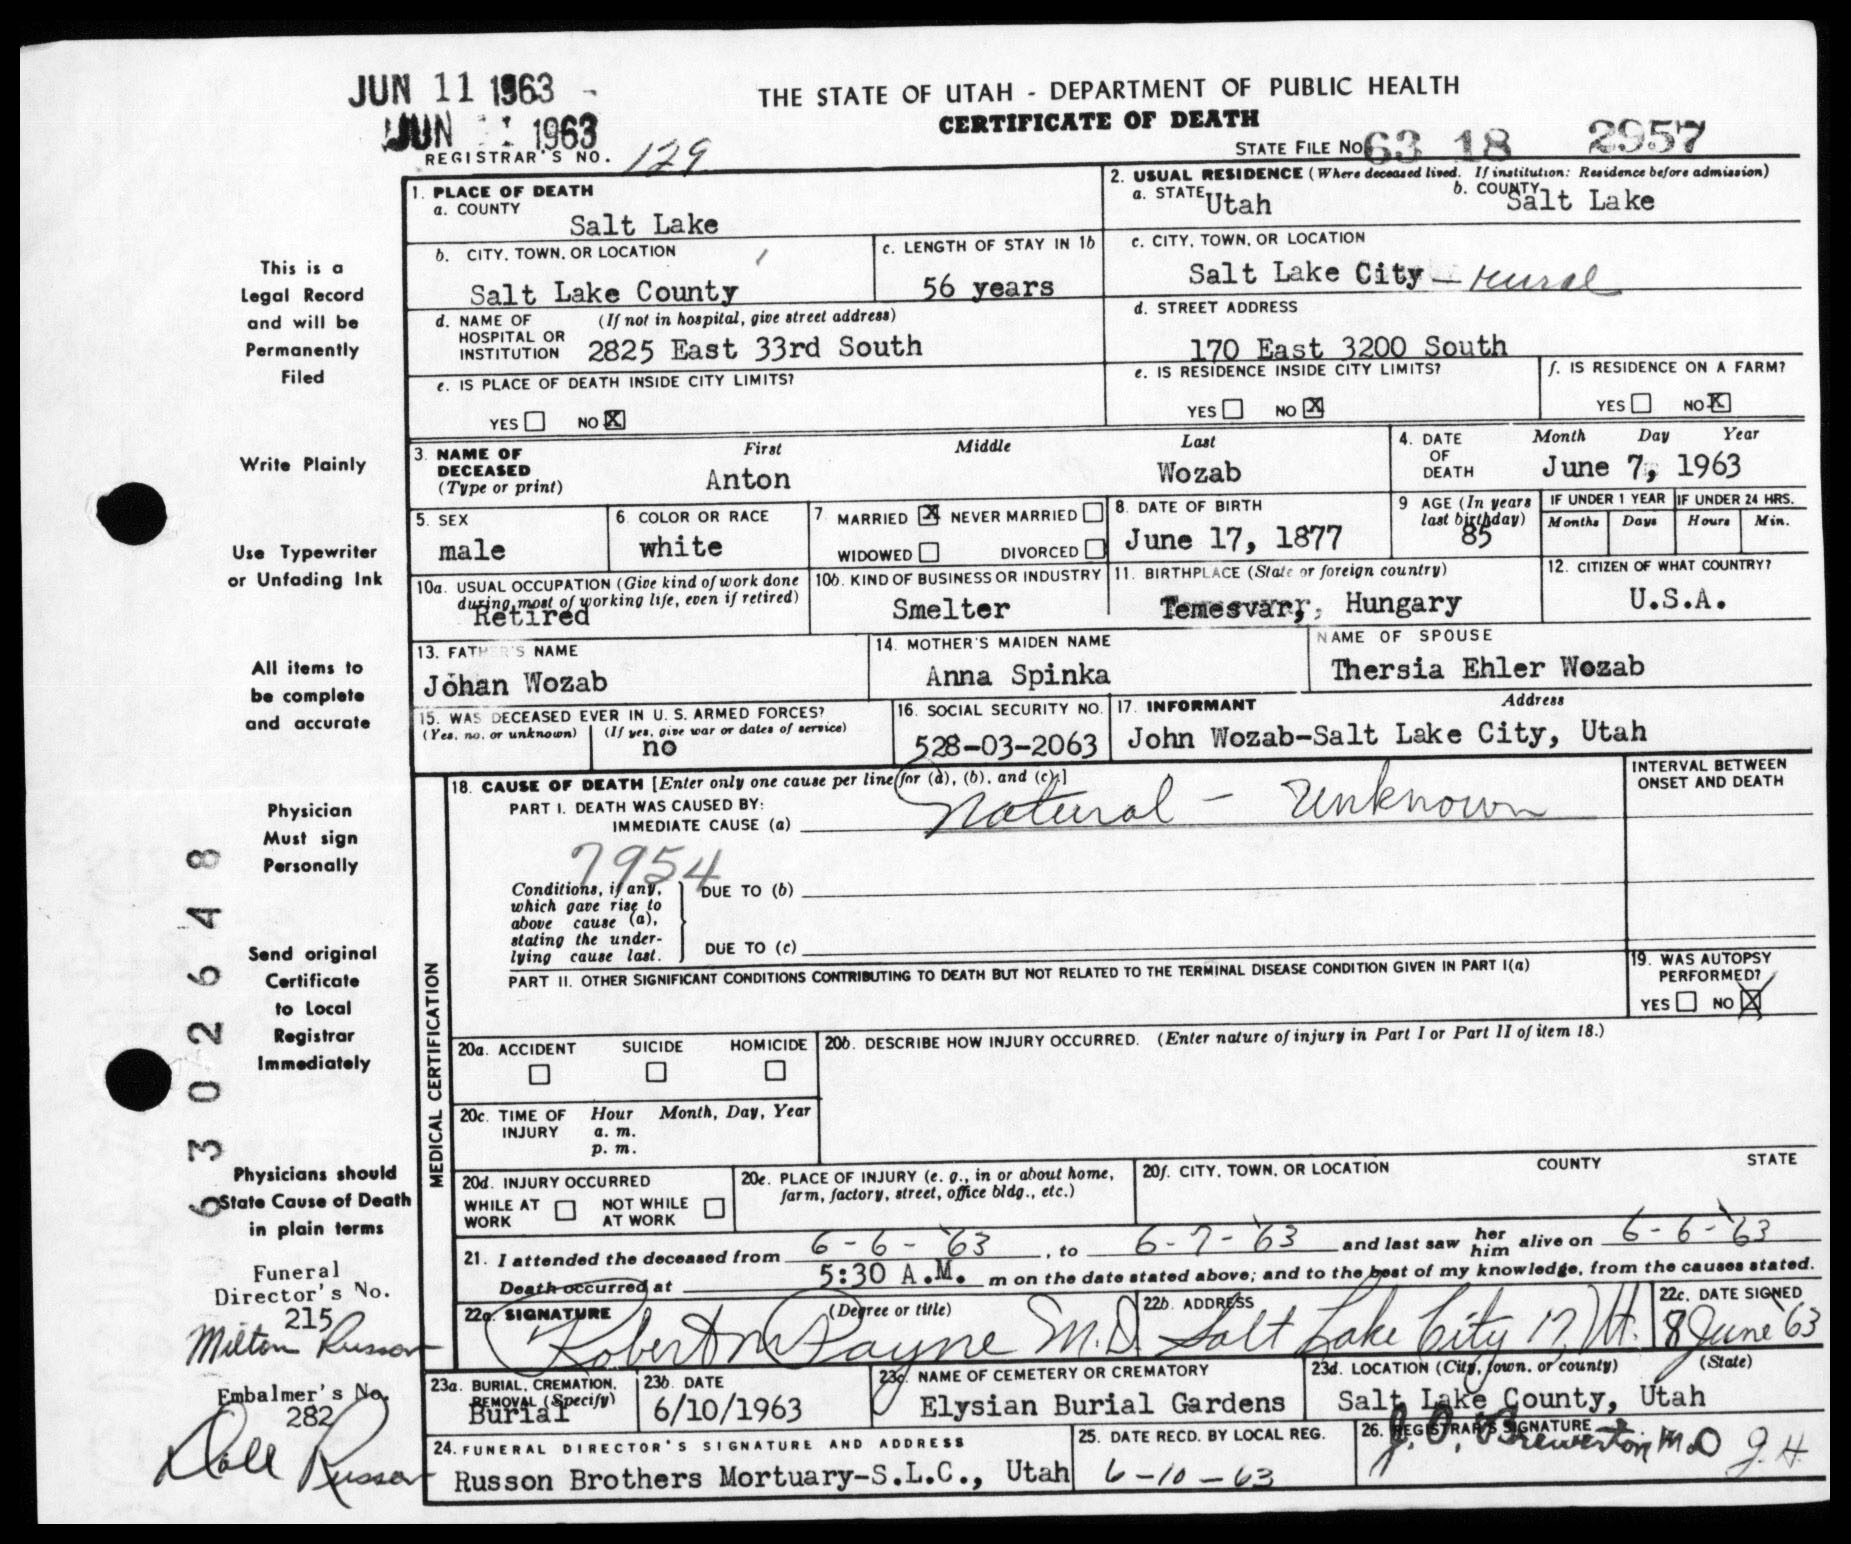 JUN 11 1963
JUN 11 1963
THE STATE OF UTAH - DEPARTMENT OF PUBLIC HEALTH
CERTIFICATE OF DEATH
REGISTRAR'S NO. 129
STATE FILE NO. 63 18 2957
1. PLACE OF DEATH
a. COUNTY
Salt Lake
2. USUAL RESIDENCE (Where deceased lived. If institution: Residence before admission)
a. STATE Utah b. COUNTY Salt Lake
b. CITY, TOWN, OR LOCATION
Salt Lake County
c. LENGTH OF STAY IN 1b
56 years
c. CITY, TOWN, OR LOCATION
Salt Lake City - rural
d. NAME OF HOSPITAL OR INSTITUTION (If not in hospital, give street address)
2825 East 33rd South
d. STREET ADDRESS
170 East 3200 South
e. IS PLACE OF DEATH INSIDE CITY LIMITS?
YES NO X
e. IS RESIDENCE INSIDE CITY LIMITS?
YES NO X
f. IS RESIDENCE ON A FARM?
YES NO X
3. NAME OF DECEASED (Type or print)
First Middle Last
Anton Wozab
4. DATE OF DEATH Month Day Year
June 7, 1963
5. SEX
male
6. COLOR OR RACE
white
7. MARRIED X NEVER MARRIED
WIDOWED DIVORCED
8. DATE OF BIRTH
June 17, 1877
9 AGE (In years last birthday)
85
IF UNDER 1 YEAR
Months Days
IF UNDER 24 HRS.
Hours Min.
10a. USUAL OCCUPATION (Give kind of work done during most of working life, even if retired)
Retired
10b. KIND OF BUSINESS OR INDUSTRY
Smelter
11. BIRTHPLACE (State or foreign country)
Temesvar, Hungary
12. CITIZEN OF WHAT COUNTRY?
U.S.A.
13. FATHER'S NAME
Johan Wozab
14. MOTHER'S MAIDEN NAME
Anna Spinka
NAME OF SPOUSE
Thersia Ehler Wozab
15. WAS DECEASED EVER IN U. S. ARMED FORCES?
(Yes, no, or unknown) (If yes, give war or dates of service)
no
16. SOCIAL SECURITY NO.
528-03-2063
17. INFORMANT Address
John Wozab-Salt Lake City, Utah
MEDICAL CERTIFICATION
18. CAUSE OF DEATH [Enter only one cause per line for (a), (b), and (c).]
PART I. DEATH WAS CAUSED BY:
IMMEDIATE CAUSE (a) Natural - Unknown
INTERVAL BETWEEN ONSET AND DEATH
7954
Conditions, if any, which gave rise to above cause (a), stating the underlying cause last.
DUE TO (b)
DUE TO (c)
PART II. OTHER SIGNIFICANT CONDITIONS CONTRIBUTING TO DEATH BUT NOT RELATED TO THE TERMINAL DISEASE CONDITION GIVEN IN PART I(a)
19. WAS AUTOPSY PERFORMED?
YES NO X
20a. ACCIDENT SUICIDE HOMICIDE
20b. DESCRIBE HOW INJURY OCCURRED. (Enter nature of injury in Part I or Part II of item 18.)
20c. TIME OF INJURY Hour Month, Day, Year
a. m.
p. m.
20d. INJURY OCCURRED
WHILE AT WORK NOT WHILE AT WORK
20e. PLACE OF INJURY (e. g., in or about home, farm, factory, street, office bldg., etc.)
20f. CITY, TOWN, OR LOCATION COUNTY STATE
21. I attended the deceased from 6-6-'63, to 6-7-'63 and last saw her him alive on 6-6-'63
Death occurred at 5:30 A.M. m on the date stated above; and to the best of my knowledge, from the causes stated.
22a. SIGNATURE (Degree or title)
Robert M Payne M.D.
22b. ADDRESS
Salt Lake City 17, Ut.
22c. DATE SIGNED
8 June '63
23a. BURIAL, CREMATION, REMOVAL (Specify)
Burial
23b. DATE
6/10/1963
23c. NAME OF CEMETERY OR CREMATORY
Elysian Burial Gardens
23d. LOCATION (City, town, or county) (State)
Salt Lake County, Utah
24. FUNERAL DIRECTOR'S SIGNATURE AND ADDRESS
Russon Brothers Mortuary-S.L.C., Utah
25. DATE RECD. BY LOCAL REG.
6-10-63
26. REGISTRAR'S SIGNATURE
J. O. Brewerton M.D J.H.
This is a
Legal Record
and will be
Permanently
Filed
Write Plainly
Use Typewriter
or Unfading Ink
All items to
be complete
and accurate
Physician
Must sign
Personally
Send original
Certificate
to Local
Registrar
Immediately
Physicians should
State Cause of Death
in plain terms
Funeral
Director's No.
215
Milton Russon
Embalmer's No.
282
Dale Russon
6302648